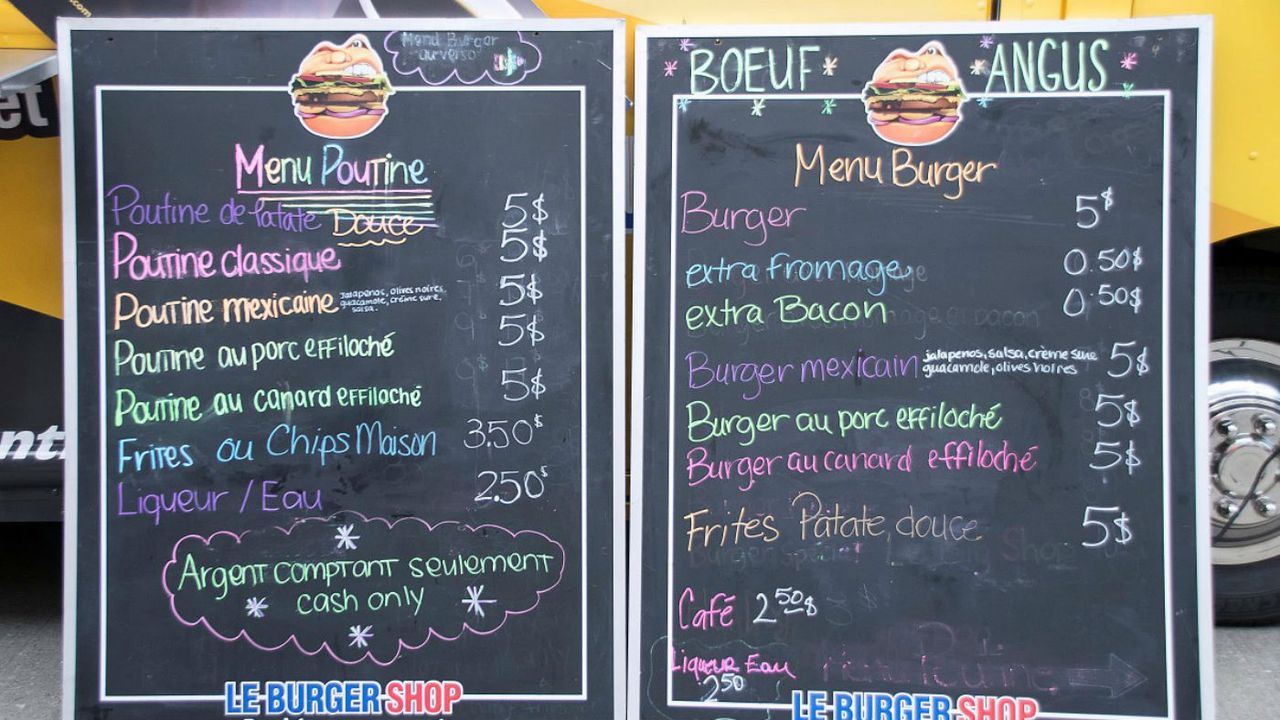 Menu Burger
au verso
Menu Poutine
Poutine de Patate Douce 5$
Poutine classique 5$
Poutine mexicaine jalapenos, olives noires, guacamole, crème sure, salsa. 5$
Poutine au porc effiloché 5$
Poutine au canard effiloché 5$
Frites ou Chips Maison 3.50$
Liqueur / Eau 2.50$
Argent comptant seulement
cash only
LE BURGER SHOP
BOEUF ANGUS
Menu Burger
Burger 5$
extra fromage 0.50$
extra Bacon 0.50$
Burger mexicain jalapenos, salsa, crème sure guacamole, olives noires 5$
Burger au porc effiloché 5$
Burger au canard effiloché 5$
Frites Patate douce 5$
Café 2.50$
Liqueur Eau
2.50
LE BURGER SHOP